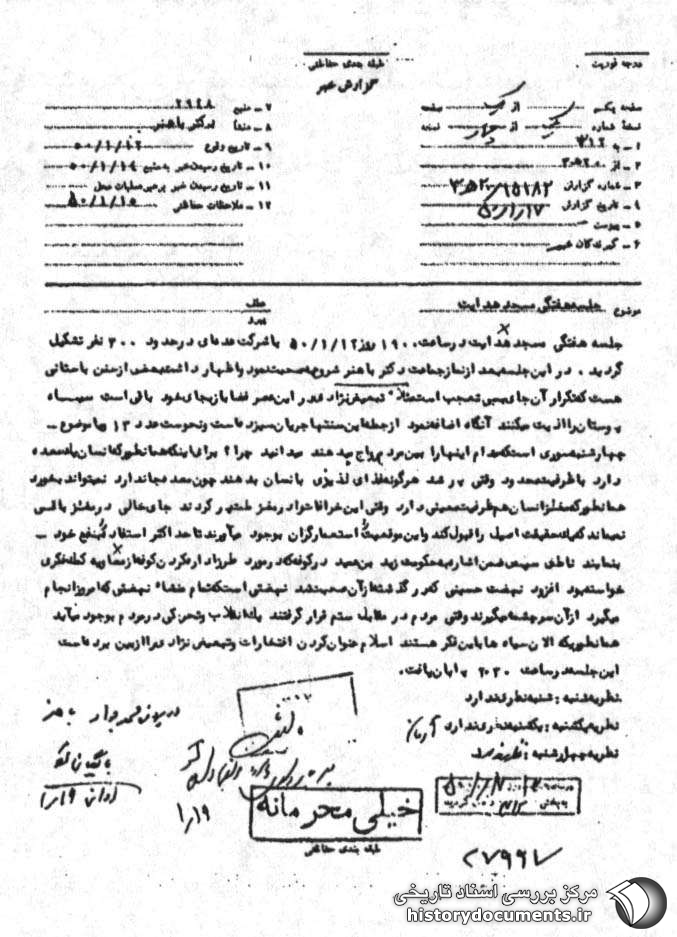 درجه فوریت
طبقه بندی حفاظتی
گزارش خبر
صفحه یکم از یک صفحه
نسخه شماره یک از چهار نسخه
۱ - به ۳۱۲
۲ - از ۲۰ه۳
۳ - شماره گزارش ۱۵۱۸۲/۲۰ه۳
۴ - تاریخ گزارش ۵۰/۱/۱۷
۵ - پیوست
۶ - گیرندگان خبر
۷ - منبع ۲۹۴۸
۸ - منشأ دکتر باهنر
۹ - تاریخ وقوع ۵۰/۱/۱۲
۱۰ - تاریخ رسیدن خبر به منبع ۵۰/۱/۱۴
۱۱ - تاریخ رسیدن خبر به رهبر عملیات محل
۱۲ - ملاحظات حفاظتی ۵۰/۱/۱۵
موضوع جلسه هفتگی مسجد هدایت
عطف
جلسه هفتگی مسجد هدایت در ساعت ۱۹۰۰ روز ۵۰/۱/۱۲ با شرکت عده‌ای در حدود ۲۰۰ نفر تشکیل
گردید . در این جلسه بعد از نماز جماعت دکتر باهنر شروع به صحبت نمود و اظهار داشت بعضی از سنن باستانی
هست که تکرار آن جای بسی تعجب است مثلا" تبعیض نژادی در این عصر فضا باز بجای خود باقی است سیاه
پوستان را اذیت میکنند آنگاه اضافه نمود از جمله این سنتها جریان سیزده است و نحوست عدد ۱۳ یا موضوع -
چهارشنبه سوری است که مدام اینها را بین مردم رواج میدهند میدانید چرا ؟ برای اینکه همانطور که انسان یک معده
دارد با ظرفیت محدود وقتی پر شد هرگونه غذای لذیذی بانسان بدهند چون معده جا ندارد نمیتواند بخورد
همانطور که مغز انسان هم ظرفیت معینی دارد وقتی این خرافات وارد مغز ملتی گردند جای خالی در مغز باقی
نمیماند که یک حقیقت اصیل را قبول کند و این موقعیت را استعمارگران بوجود میآورند تا حد اکثر استفاده را بنفع خود -
بنمایند ناطق سپس ضمن اشاره به حکومت یزید بن معید در کوفه که در مورد طرز اداره کردن کوفه از معاویه کمک فکری
خواسته بود افزود نهضت حسینی که در گذشته از آن صحبت شد نهضتی است که تمام نهضتی که امروز انجام
میگیرد از آن سرچشمه میگیرند وقتی مردم در مقابل ستم قرار گرفتند یک انقلاب و تحرکی در مردم بوجود میآید
همانطوریکه الان سیاه ها باین فکر هستند اسلام عنوان کردن افتخارات و تبعیض نژادی را از بین برده است
این جلسه در ساعت ۲۰۳۰ پایان یافت .
نظریه شنبه : شنبه نظری ندارد
نظریه یکشنبه : یکشنبه نظری ندارد
نظریه چهارشنبه : نظری ندارد
۱/۱۹
خیلی محرمانه
طبقه بندی حفاظتی
۲۷۹۶۷
مرکز بررسی اسناد تاریخی
historydocuments.ir